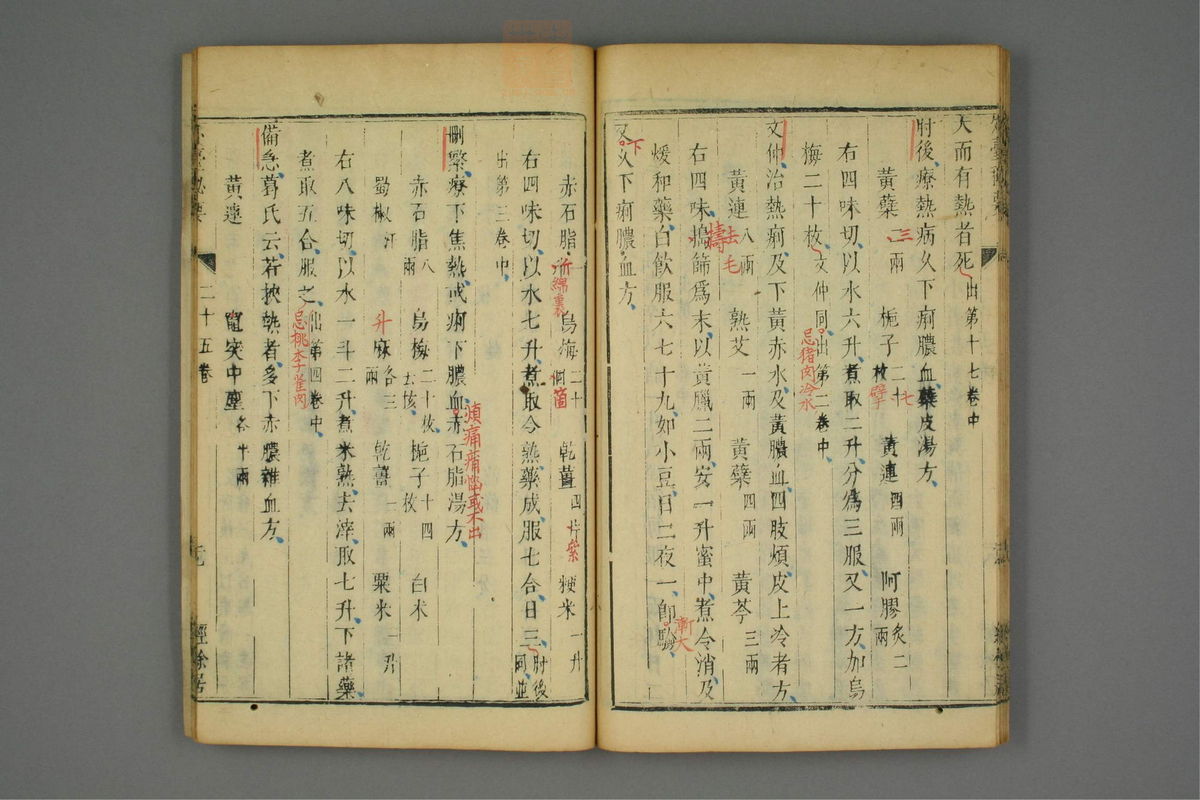 大而有熱者死出第十七卷中
肘後療熱病久下痢膿血蘗皮湯方
黃蘗三兩 梔子二十枚擘 黃連四兩 阿膠炙二兩
右四味切以水六升煮取二升分爲三服又一方加烏
梅二十枚文仲同出第二卷中
忌猪肉冷水
文仲治熱痢及下黃赤水及黃膿血四肢煩皮上冷者方
黃連八兩去毛 熟艾一兩 黃蘗四兩 黃芩三兩
右四味搗篩爲末以黃臘二兩安一升蜜中煮令消及
擣
煖和藥白飲服六七十丸如小豆日二夜一卽驗
漸大
又久下痢膿血方
下
赤石脂一斤綿裹 烏梅二十箇 乾薑四片 粳米一升
右四味切以水七升煮取令熟藥成服七合日三肘後同並
出第三卷中
刪繁療下焦熱或痢下膿血赤石脂湯方
煩痛痛悶或不出
赤石脂八兩 烏梅二十枚去核 梔子十四枚 白朮
蜀椒汗 升麻各三兩 乾薑一兩 粟米一升
右八味切以水一斗二升煮米熟去滓取七升下諸藥
煮取五合服之出第四卷中
忌桃李雀肉
備急葛氏云若挾熱者多下赤膿雜血方
黃連 竈突中塵各半兩
二十五卷
經餘居